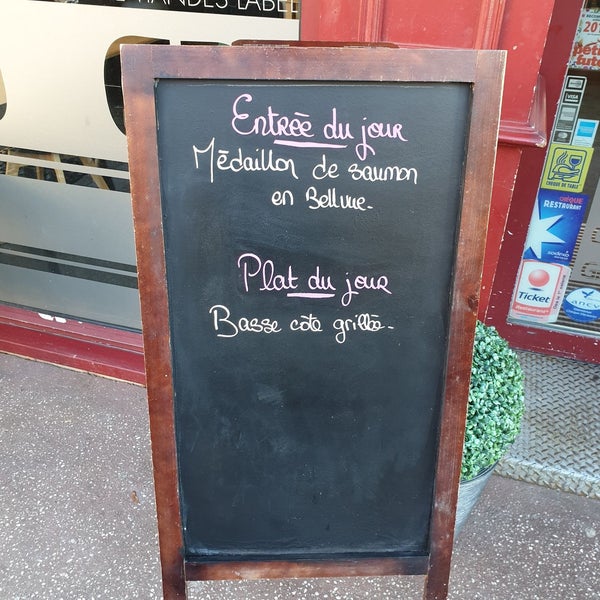 ANDES LABEL
Entrée du jour
Médaillon de saumon
en Bellvue.
Plat du jour
Basse cote grillée.
VISA
CHÈQUE DE TABLE
CHÈQUE
RESTAURANT
sodexo
Ticket
Restaurant
ANCV